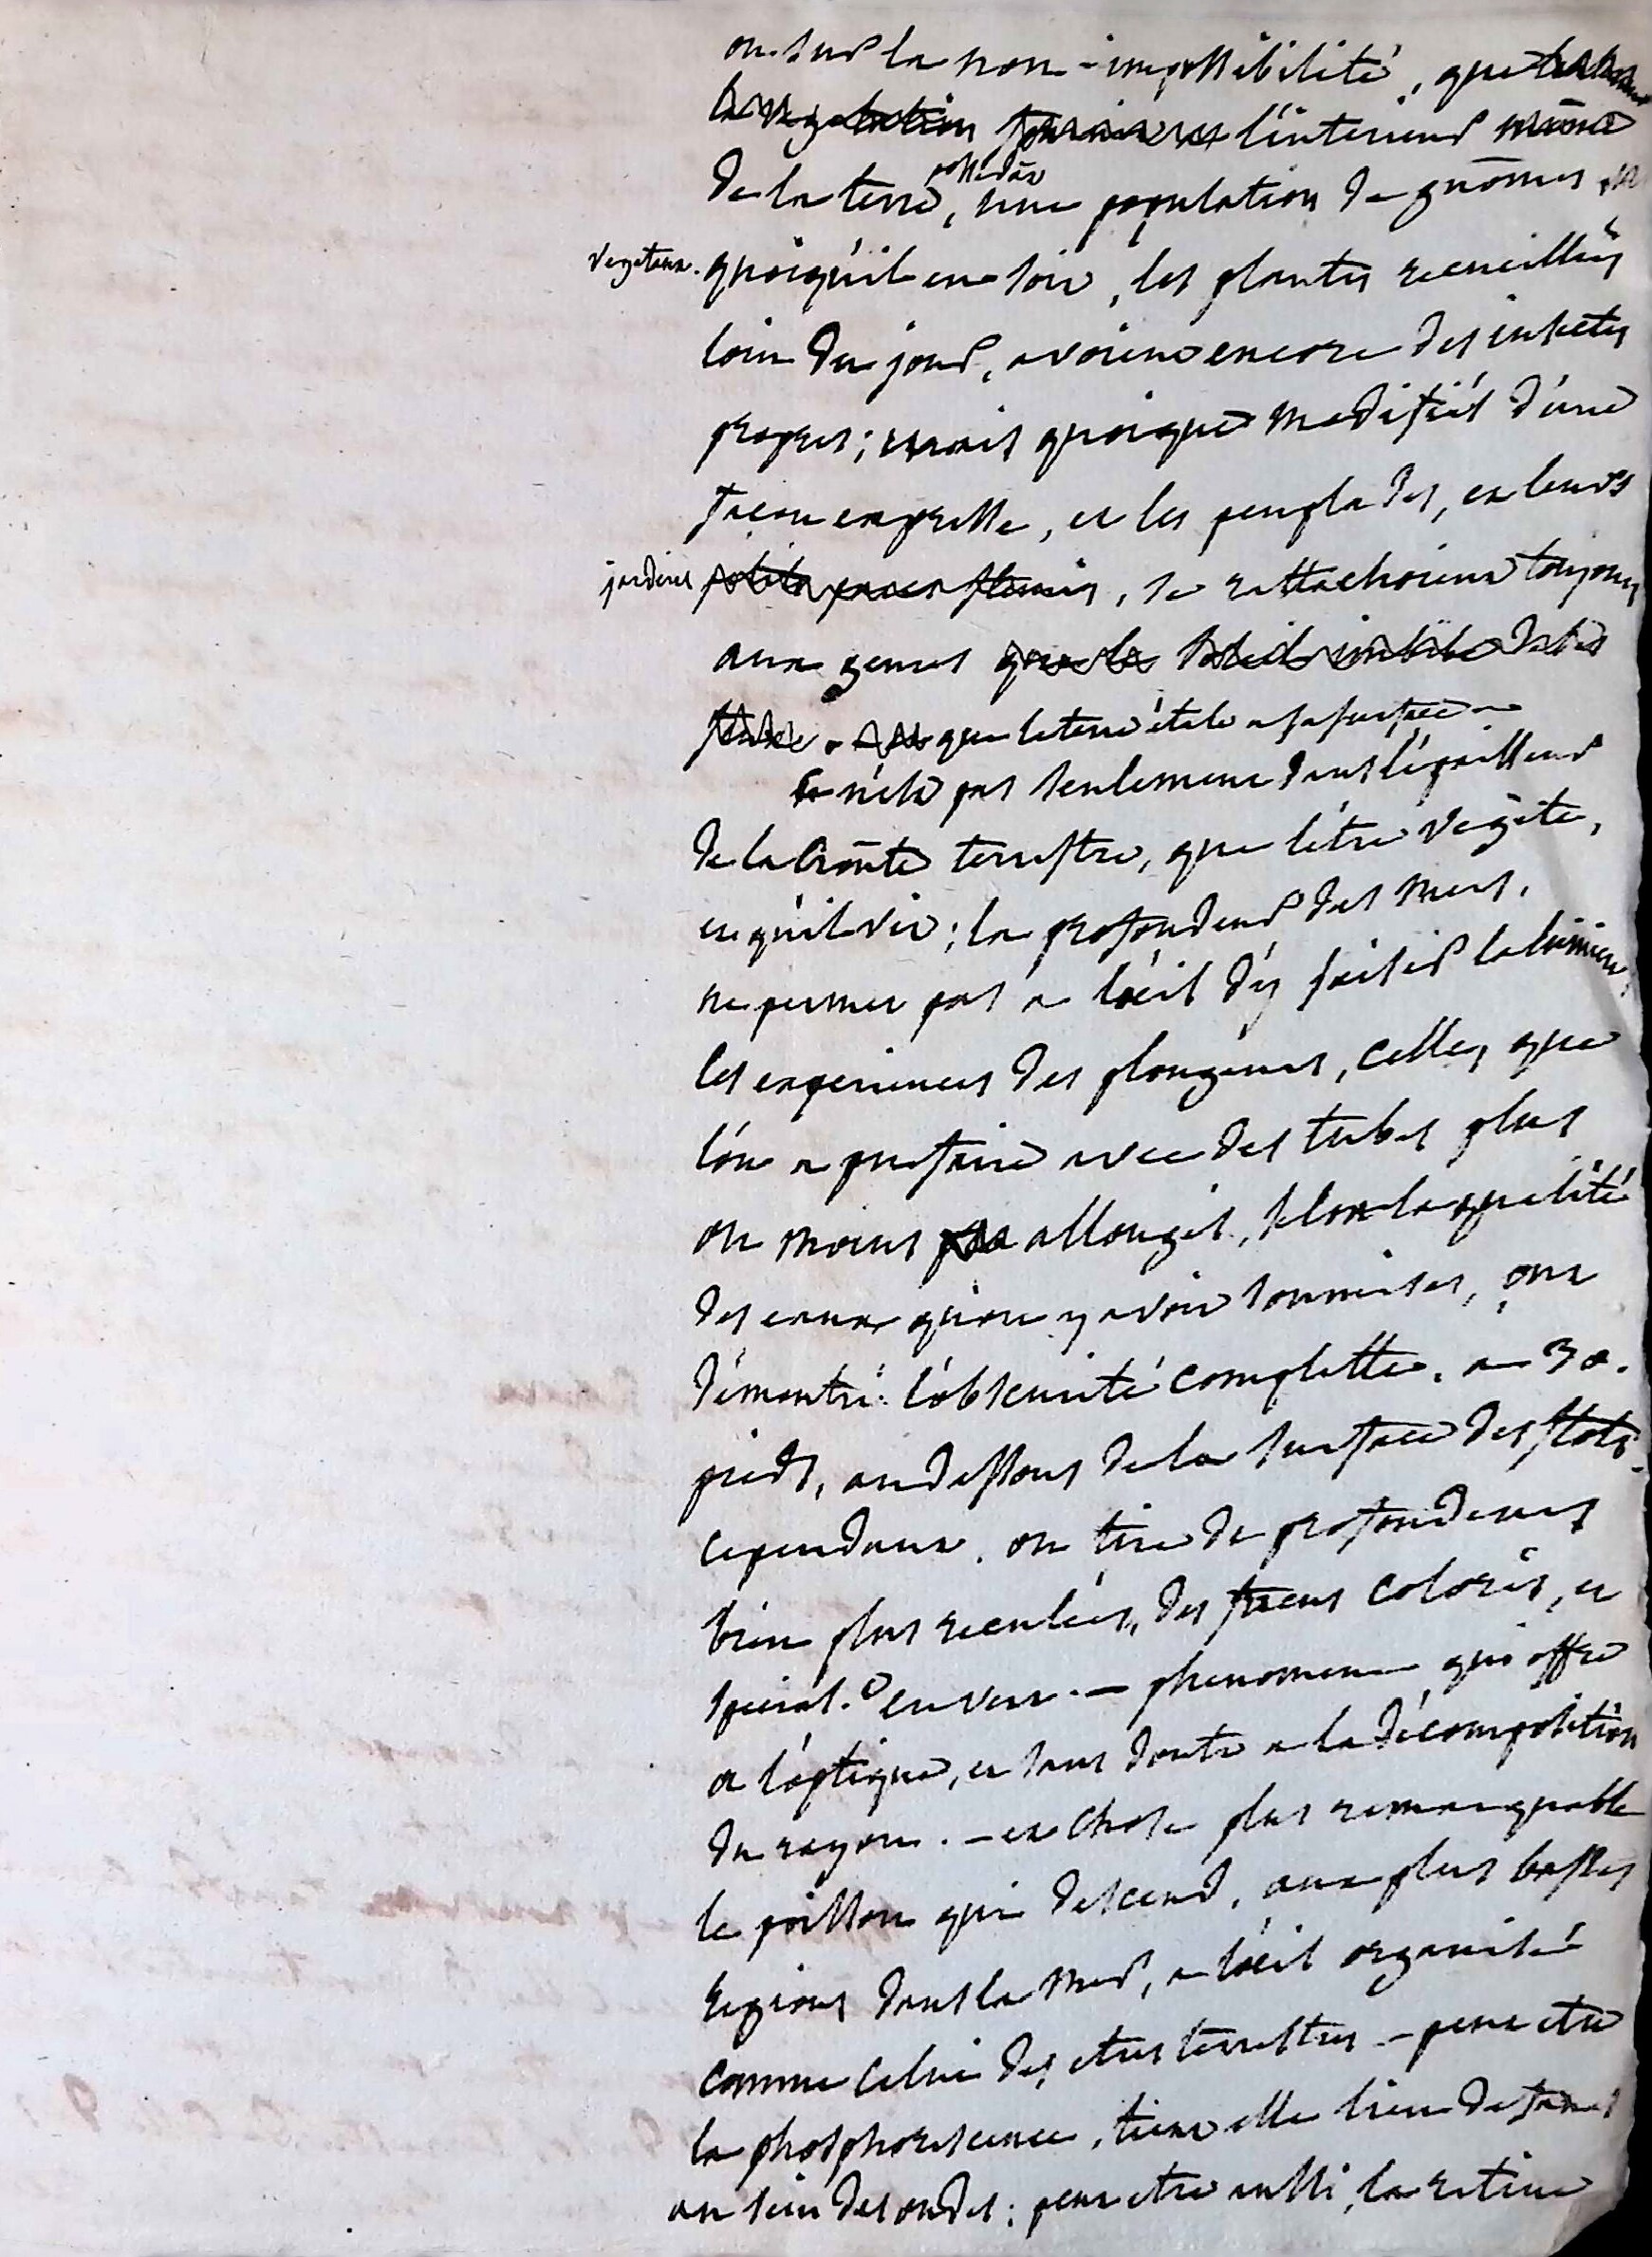 ou sur la non-impossibilité, que
la vegetation l'interieur même
de la terre, possedât une population de gnômes
vegetaux. quoiqu'il en soit, les plantes recueillies
loin du jour, avoient encore des insectes
propres; mais quoique modifiés d'une
façon expresse, et les peuplades, et leurs
jardins, se rattachoient toujours
aux genres
que la terre étale a sa surface
Ce n'est pas seulement dans l'épaisseur
de la croûte terrestre, que l'être végète,
et qu'il vit; la profondeur des mers,
ne permet pas a l'œil d'y saisir la lumiere,
les experiences des plongeurs, celles que
l'on a pu faire avec des tubes plus
ou moins allongés, selon la qualité
des eaux qu'on y avoit soumises, ont
démontré l'obscurité complette, a 30.
pieds, au dessous de la surface des flots.
cependant, on tire de profondeurs
bien plus reculées, des fucus colorés, et
en vert. - phenomene qui offre
a l'optique, et sans doute a la décomposition
du rayon. - et chose plus remarquable
le poisson qui descend, aux plus basses
regions dans la mer, a l'œil organisé
comme celui des etres terrestres - peut etre
la phosphorescence, tient elle lieu de
au sein des ondes; peut etre aussi, la retine